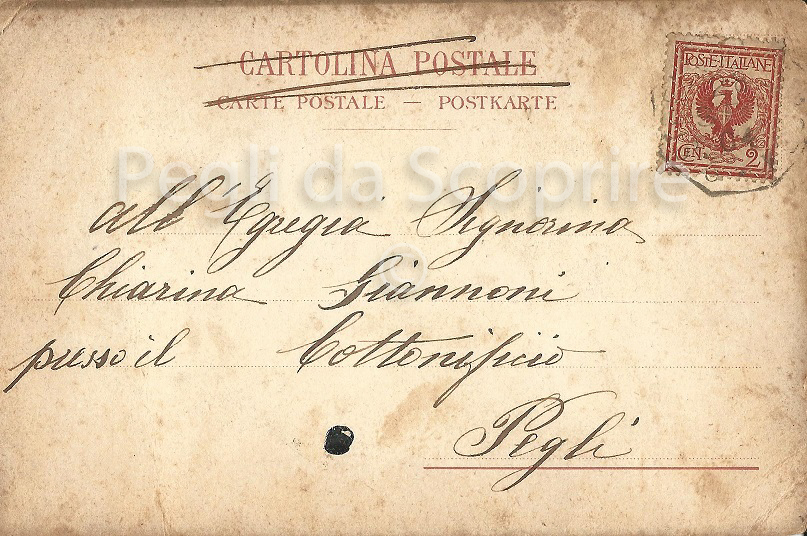 CARTOLINA POSTALE
CARTE POSTALE — POSTKARTE
POSTE·ITALIANE
CEN. 2
Pegli da Scoprire
©
all'Egregia Signorina
Chiarina Giannoni
presso il Cottonificio
Pegli